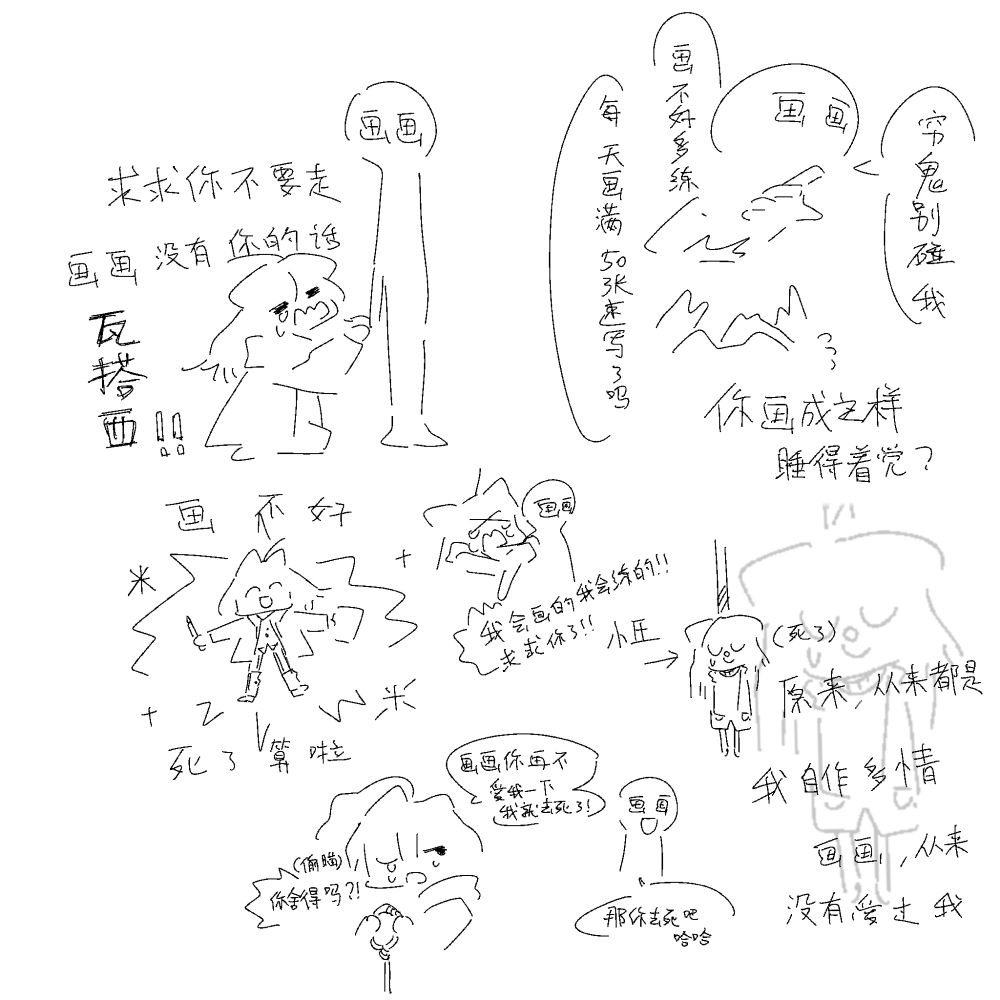 画画
求求你不要走
画画没有你的话
瓦塔西!!
画画
画不好多练
每天画满50张速写了吗
穷鬼别碰我
你画成这样
睡得着觉?
画不好
死了算啦
画画
我会画的我会练的!!
求求你了!!
小王
(死了)
原来,从来都是
我自作多情
画画,从来
没有爱过我
画画你再不
爱我一下
我就去死了!
(偷瞄)
你舍得吗?!
画画
那你去死吧
哈哈